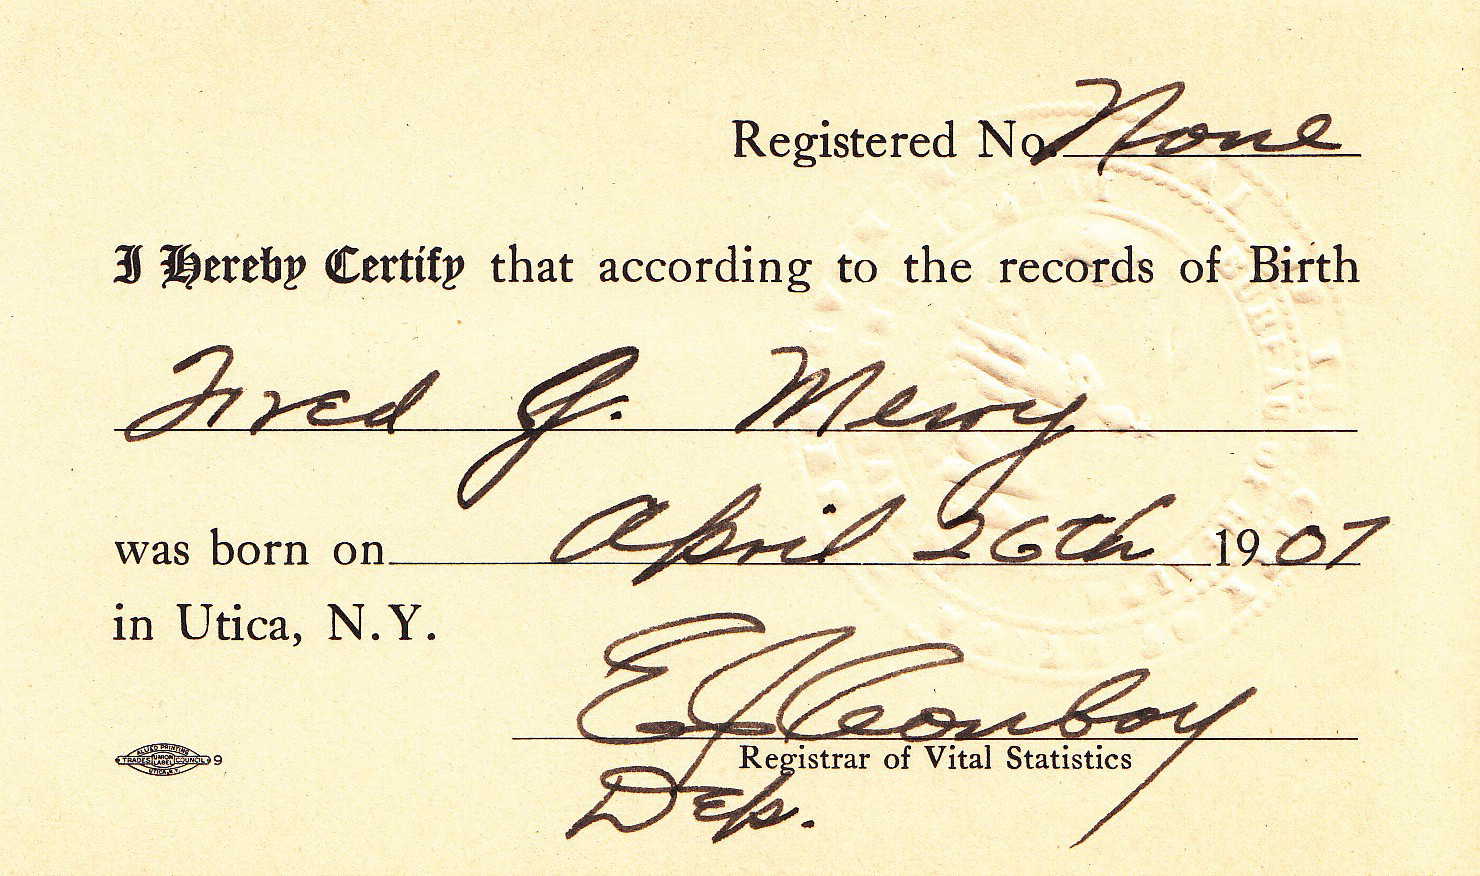 Registered No. None
I Hereby Certify that according to the records of Birth
Fred J. Merry
was born on April 26th 1907
in Utica, N.Y.
E J Conboy
Registrar of Vital Statistics
Dep.
ALLIED PRINTING
TRADES UNION LABEL COUNCIL 9
UTICA, N.Y.